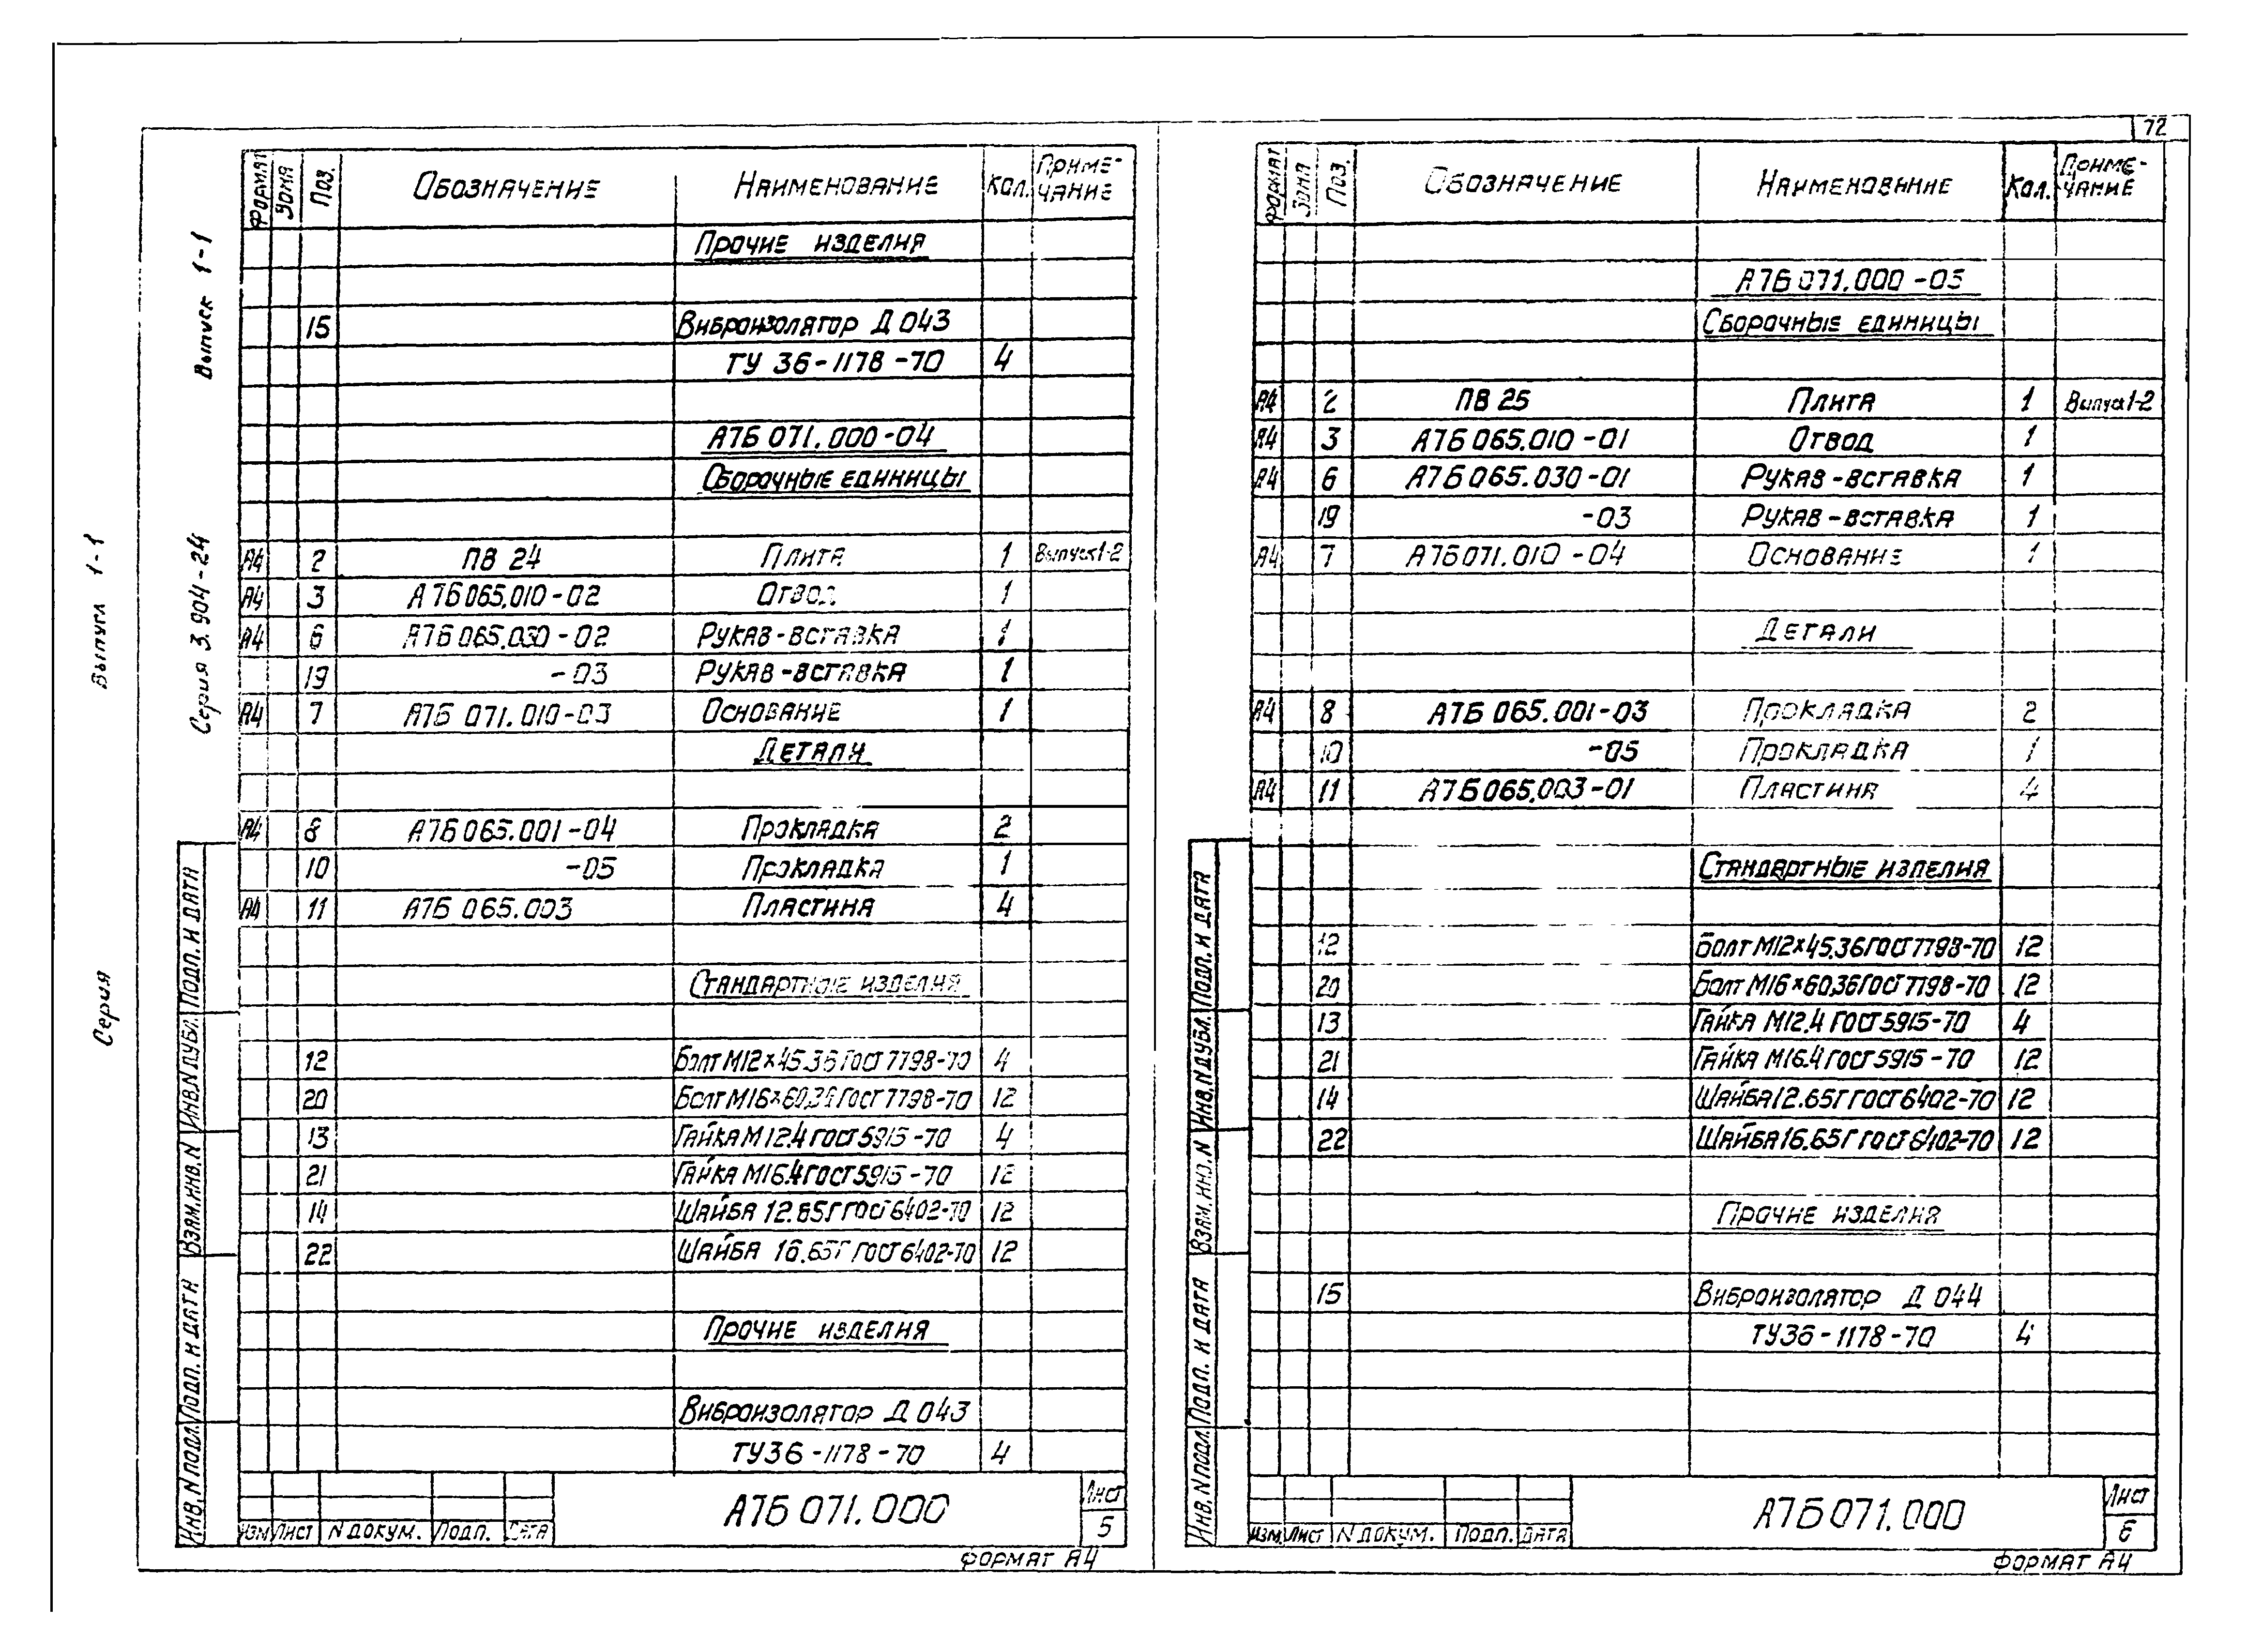 72
Выпуск 1-1
Серия
Выпуск 1-1
Серия 3.904-24
Формат Зона Поз. Обозначение Наименование Кол. Примечание
Прочие изделия
15 Виброизолятор Д 043
ТУ 36-1178-70 4
А7Б 071.000-04
Сборочные единицы
А4 2 ПВ 24 Плита 1 Выпуск 1-2
А4 3 А7Б 065.010-02 Отвод 1
А4 6 А7Б 065.030-02 Рукав-вставка 1
19 -03 Рукав-вставка 1
А4 7 А7Б 071.010-03 Основание 1
Детали
А4 8 А7Б 065.001-04 Прокладка 2
10 -05 Прокладка 1
А4 11 А7Б 065.003 Пластина 4
Стандартные изделия
12 Болт М12×45.36 ГОСТ 7798-70 4
20 Болт М16×60.36 ГОСТ 7798-70 12
13 Гайка М12.4 ГОСТ 5915-70 4
21 Гайка М16.4 ГОСТ 5915-70 12
14 Шайба 12.65Г ГОСТ 6402-70 12
22 Шайба 16.65Г ГОСТ 6402-70 12
Прочие изделия
Виброизолятор Д 043
ТУ 36-1178-70 4
Инв. N подл. Подп. и дата Взам. инв. N Инв. N дубл. Подп. и дата
Изм Лист N докум. Подп. Дата
А7Б 071.000
Лист
5
Формат А4
Формат Зона Поз. Обозначение Наименование Кол. Примечание
А7Б 071.000-05
Сборочные единицы
А4 2 ПВ 25 Плита 1 Выпуск 1-2
А4 3 А7Б 065.010-01 Отвод 1
А4 6 А7Б 065.030-01 Рукав-вставка 1
19 -03 Рукав-вставка 1
А4 7 А7Б 071.010-04 Основание 1
Детали
А4 8 А7Б 065.001-03 Прокладка 2
10 -05 Прокладка 1
А4 11 А7Б 065.003-01 Пластина 4
Стандартные изделия
12 Болт М12×45.36 ГОСТ 7798-70 12
20 Болт М16×60.36 ГОСТ 7798-70 12
13 Гайка М12.4 ГОСТ 5915-70 4
21 Гайка М16.4 ГОСТ 5915-70 12
14 Шайба 12.65Г ГОСТ 6402-70 12
22 Шайба 16.65Г ГОСТ 6402-70 12
Прочие изделия
15 Виброизолятор Д 044
ТУ 36-1178-70 4
Инв. N подл. Подп. и дата Взам. инв. N Инв. N дубл. Подп. и дата
Изм. Лист N докум. Подп. Дата
А7Б 071.000
Лист
6
Формат А4